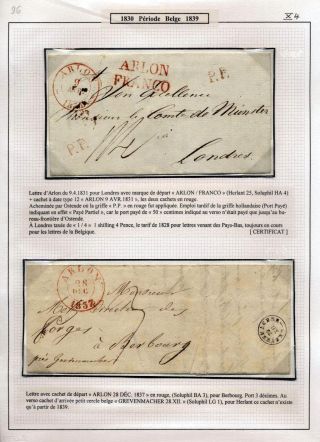 96
1830 Période Belge 1839
X 4
ARLON
9
1831
ARLON
FRANCO
P.P.
Son Excellence
Monsieur le Comte de Munster
P.P.
1/4
Londres
Lettre d'Arlon du 9.4.1831 pour Londres avec marque de départ « ARLON / FRANCO » (Herlant 25, Soluphil HA 4)
+ cachet à date type 12 « ARLON 9 AVR.1831 », les deux cachets en rouge.
Acheminée par Ostende où la griffe « P.P. » en rouge fut appliquée. Emploi tardif de la griffe hollandaise (Port Payé)
indiquant en effet « Payé Partiel », car le port payé de « 50 » centimes indiqué au verso n'était payé que jusqu'au bu-
reau-frontière d'Ostende.
A Londres taxée de « 1 / 4 » 1 shilling 4 Pence, le tarif de 1828 pour lettres venant des Pays-Bas, toujours en cours
pour les lettres de la Belgique.
[ CERTIFICAT ]
ARLON
28
DEC
1837
Monsieur
Forges
à Berbourg
près Grevenmacher
Lettre avec cachet de départ « ARLON 28 DÉC. 1837 » en rouge (Soluphil BA 3), pour Berbourg. Port 3 décimes. Au
verso cachet d'arrivée petit cercle belge « GREVENMACHER 28.XII. » (Soluphil LG 1), pour Herlant ce cachet n'existe
qu'à partir de 1839.